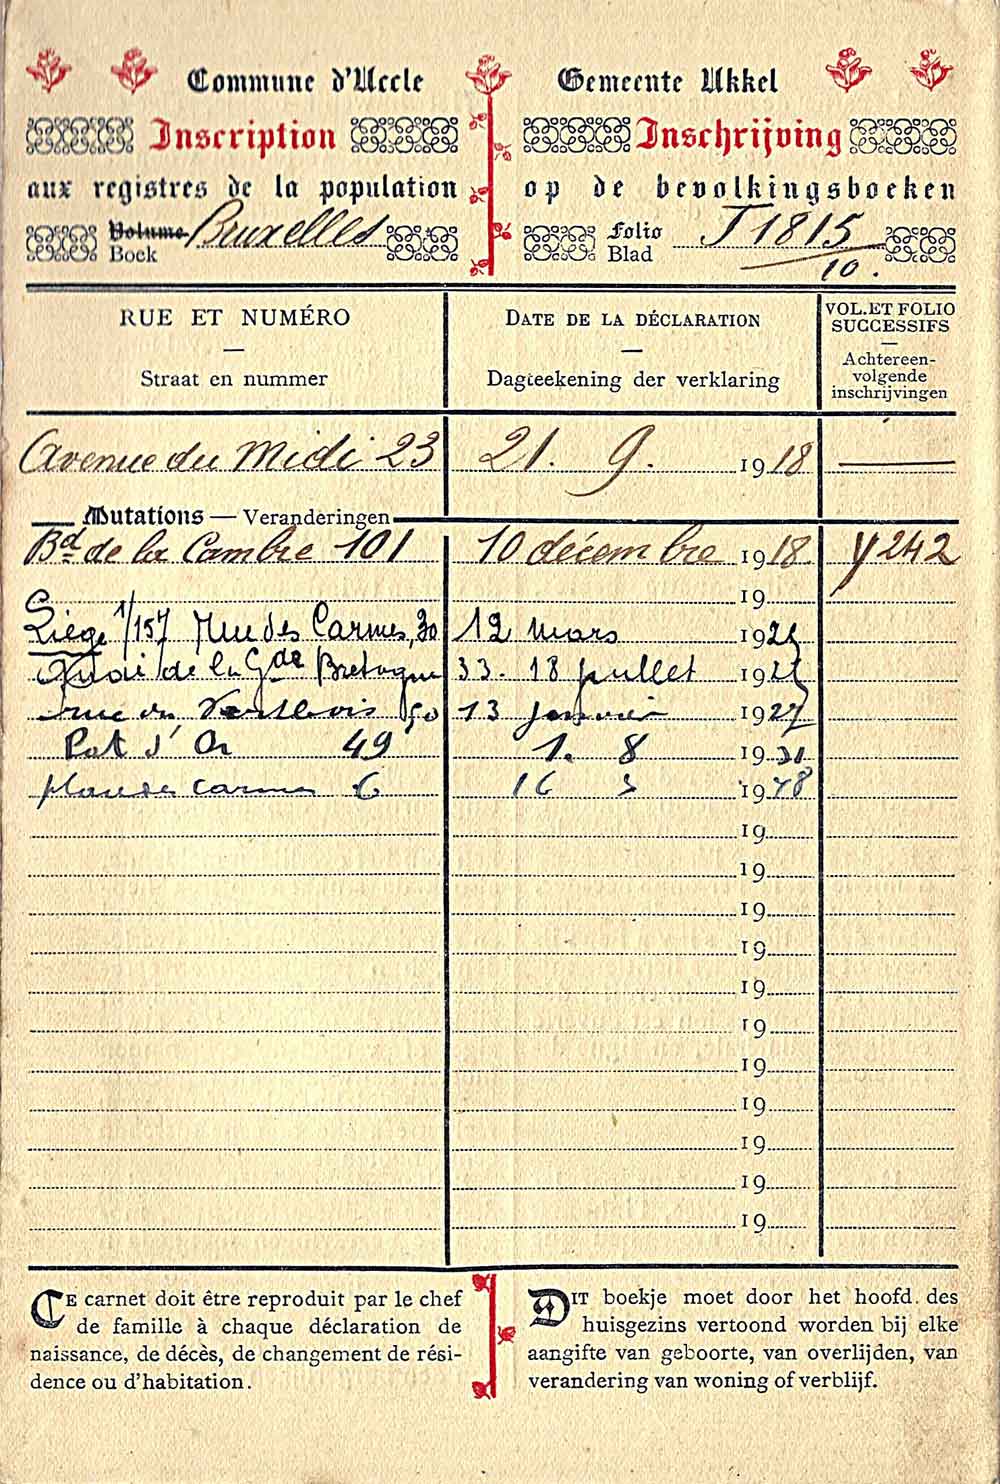 Commune d'Uccle
Inscription
aux registres de la population
Volume Bruxelles
Boek
Gemeente Ukkel
Inschrijving
op de bevolkingsboeken
Folio J 1815
Blad 10.
RUE ET NUMÉRO
—
Straat en nummer
DATE DE LA DÉCLARATION
—
Dagteekening der verklaring
VOL. ET FOLIO
SUCCESSIFS
—
Achtereen-
volgende
inschrijvingen
Avenue du Midi 23 21. 9. 1918 —
Mutations — Veranderingen
Bd de la Cambre 101 10 décembre 1918 Y 242
19
Liège 1/157 Rue des Carmes, 30 12 mars 192
Quai de la Gde Bretagne 33. 18 juillet 192
rue du Vertbois 50 13 janvier 1927
Pot d'Or 49 1. 8 19
place des carmes 6 16 1948
19
19
19
19
19
19
19
19
19
19
19
CE carnet doit être reproduit par le chef
de famille à chaque déclaration de
naissance, de décès, de changement de rési-
dence ou d'habitation.
DIT boekje moet door het hoofd des
huisgezins vertoond worden bij elke
aangifte van geboorte, van overlijden, van
verandering van woning of verblijf.